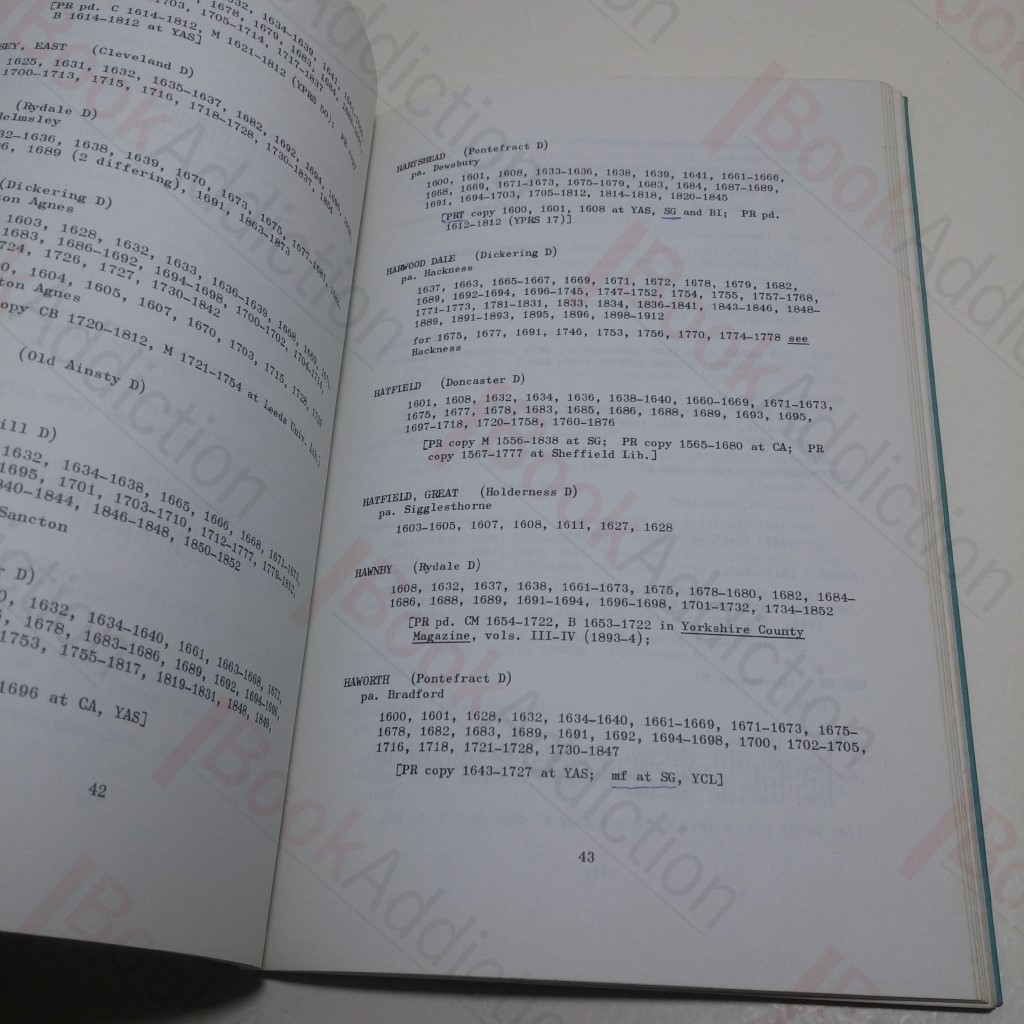 [PR pd. C 1614-1812, M 1621-1812 (YPRS 50);
B 1614-1812 at YAS]
EAST (Cleveland D)
1625, 1631, 1632, 1635-1637, 1682, 1692, 1694,
1700-1713, 1715, 1716, 1718-1728, 1730-1837
(Rydale D)
1636, 1638, 1639, 1670, 1673, 1675, 1677-1681,
1689 (2 differing), 1691, 1863-1873
(Dickering D)
Agnes
1603, 1628, 1632, 1633, 1636-1639, 1668, 1669,
1683, 1686-1692, 1694-1698, 1700-1702, 1704-1714,
1726, 1727, 1730-1842
1604, 1605, 1607, 1670, 1703, 1715, 1728, 1729
Agnes
CB 1720-1812, M 1721-1754 at Leeds Univ. Lib.]
(Old Ainsty D)
D)
1632, 1634-1638, 1665, 1666, 1668, 1671-1673,
1695, 1701, 1703-1710, 1712-1777, 1779-1812,
1846-1848, 1850-1852
Sancton
D)
1632, 1634-1640, 1661, 1663-1668, 1671,
1678, 1683-1686, 1689, 1692, 1694-1696,
1753, 1755-1817, 1819-1831, 1848, 1849,
1696 at CA, YAS]
42
HARTSHEAD (Pontefract D)
pa. Dewsbury
1600, 1601, 1608, 1633-1636, 1638, 1639, 1641, 1661-1666,
1668, 1669, 1671-1673, 1675-1679, 1683, 1684, 1687-1689,
1691, 1694-1703, 1705-1812, 1814-1818, 1820-1845
[PRT copy 1600, 1601, 1608 at YAS, SG and BI; PR pd.
1612-1812 (YPRS 17)]
HARWOOD DALE (Dickering D)
pa. Hackness
1637, 1663, 1665-1667, 1669, 1671, 1672, 1678, 1679, 1682,
1689, 1692-1694, 1696-1745, 1747-1752, 1754, 1755, 1757-1768,
1771-1773, 1781-1831, 1833, 1834, 1836-1841, 1843-1846, 1848-
1889, 1891-1893, 1895, 1896, 1898-1912
for 1675, 1677, 1691, 1746, 1753, 1756, 1770, 1774-1778 see
Hackness
HATFIELD (Doncaster D)
1601, 1608, 1632, 1634, 1636, 1638-1640, 1660-1669, 1671-1673,
1675, 1677, 1678, 1683, 1685, 1686, 1688, 1689, 1693, 1695,
1697-1718, 1720-1758, 1760-1876
[PR copy M 1556-1838 at SG; PR copy 1565-1680 at CA; PR
copy 1567-1777 at Sheffield Lib.]
HATFIELD, GREAT (Holderness D)
pa. Sigglesthorne
1603-1605, 1607, 1608, 1611, 1627, 1628
HAWNBY (Rydale D)
1608, 1632, 1637, 1638, 1661-1673, 1675, 1678-1680, 1682, 1684-
1686, 1688, 1689, 1691-1694, 1696-1698, 1701-1732, 1734-1852
[PR pd. CM 1654-1722, B 1653-1722 in Yorkshire County
Magazine, vols. III-IV (1893-4);
HAWORTH (Pontefract D)
pa. Bradford
1600, 1601, 1628, 1632, 1634-1640, 1661-1669, 1671-1673, 1675-
1678, 1682, 1683, 1689, 1691, 1692, 1694-1698, 1700, 1702-1705,
1716, 1718, 1721-1728, 1730-1847
[PR copy 1643-1727 at YAS; mf at SG, YCL]
43
BookAddiction